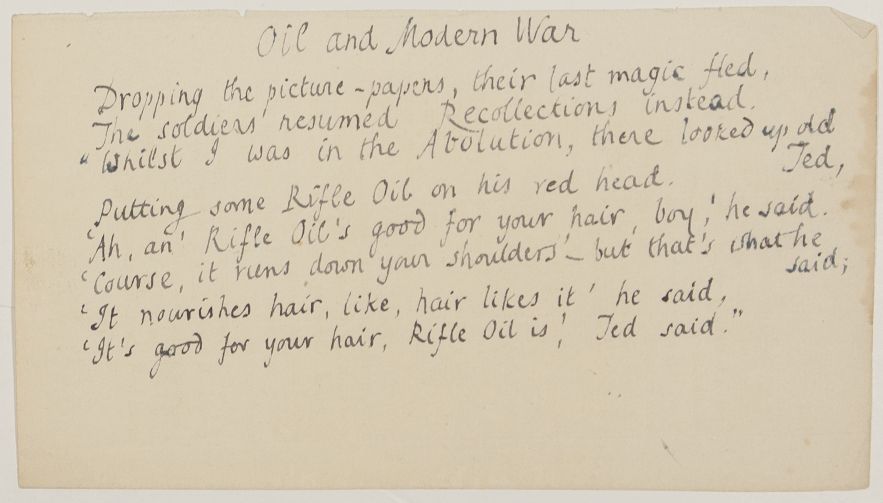 Oil and Modern War
Dropping the picture-papers, their last magic fled,
The soldiers resumed Recollections instead.
"Whilst I was in the Abolution, there looked up old
Ted,
Putting some Rifle Oil on his red head.
'Ah, an' Rifle Oil's good for your hair, boy,' he said.
'Course, it runs down your shoulders' – but that's what he
said;
'It nourishes hair, like, hair likes it' he said,
'It's good for your hair, Rifle Oil is', Ted said."